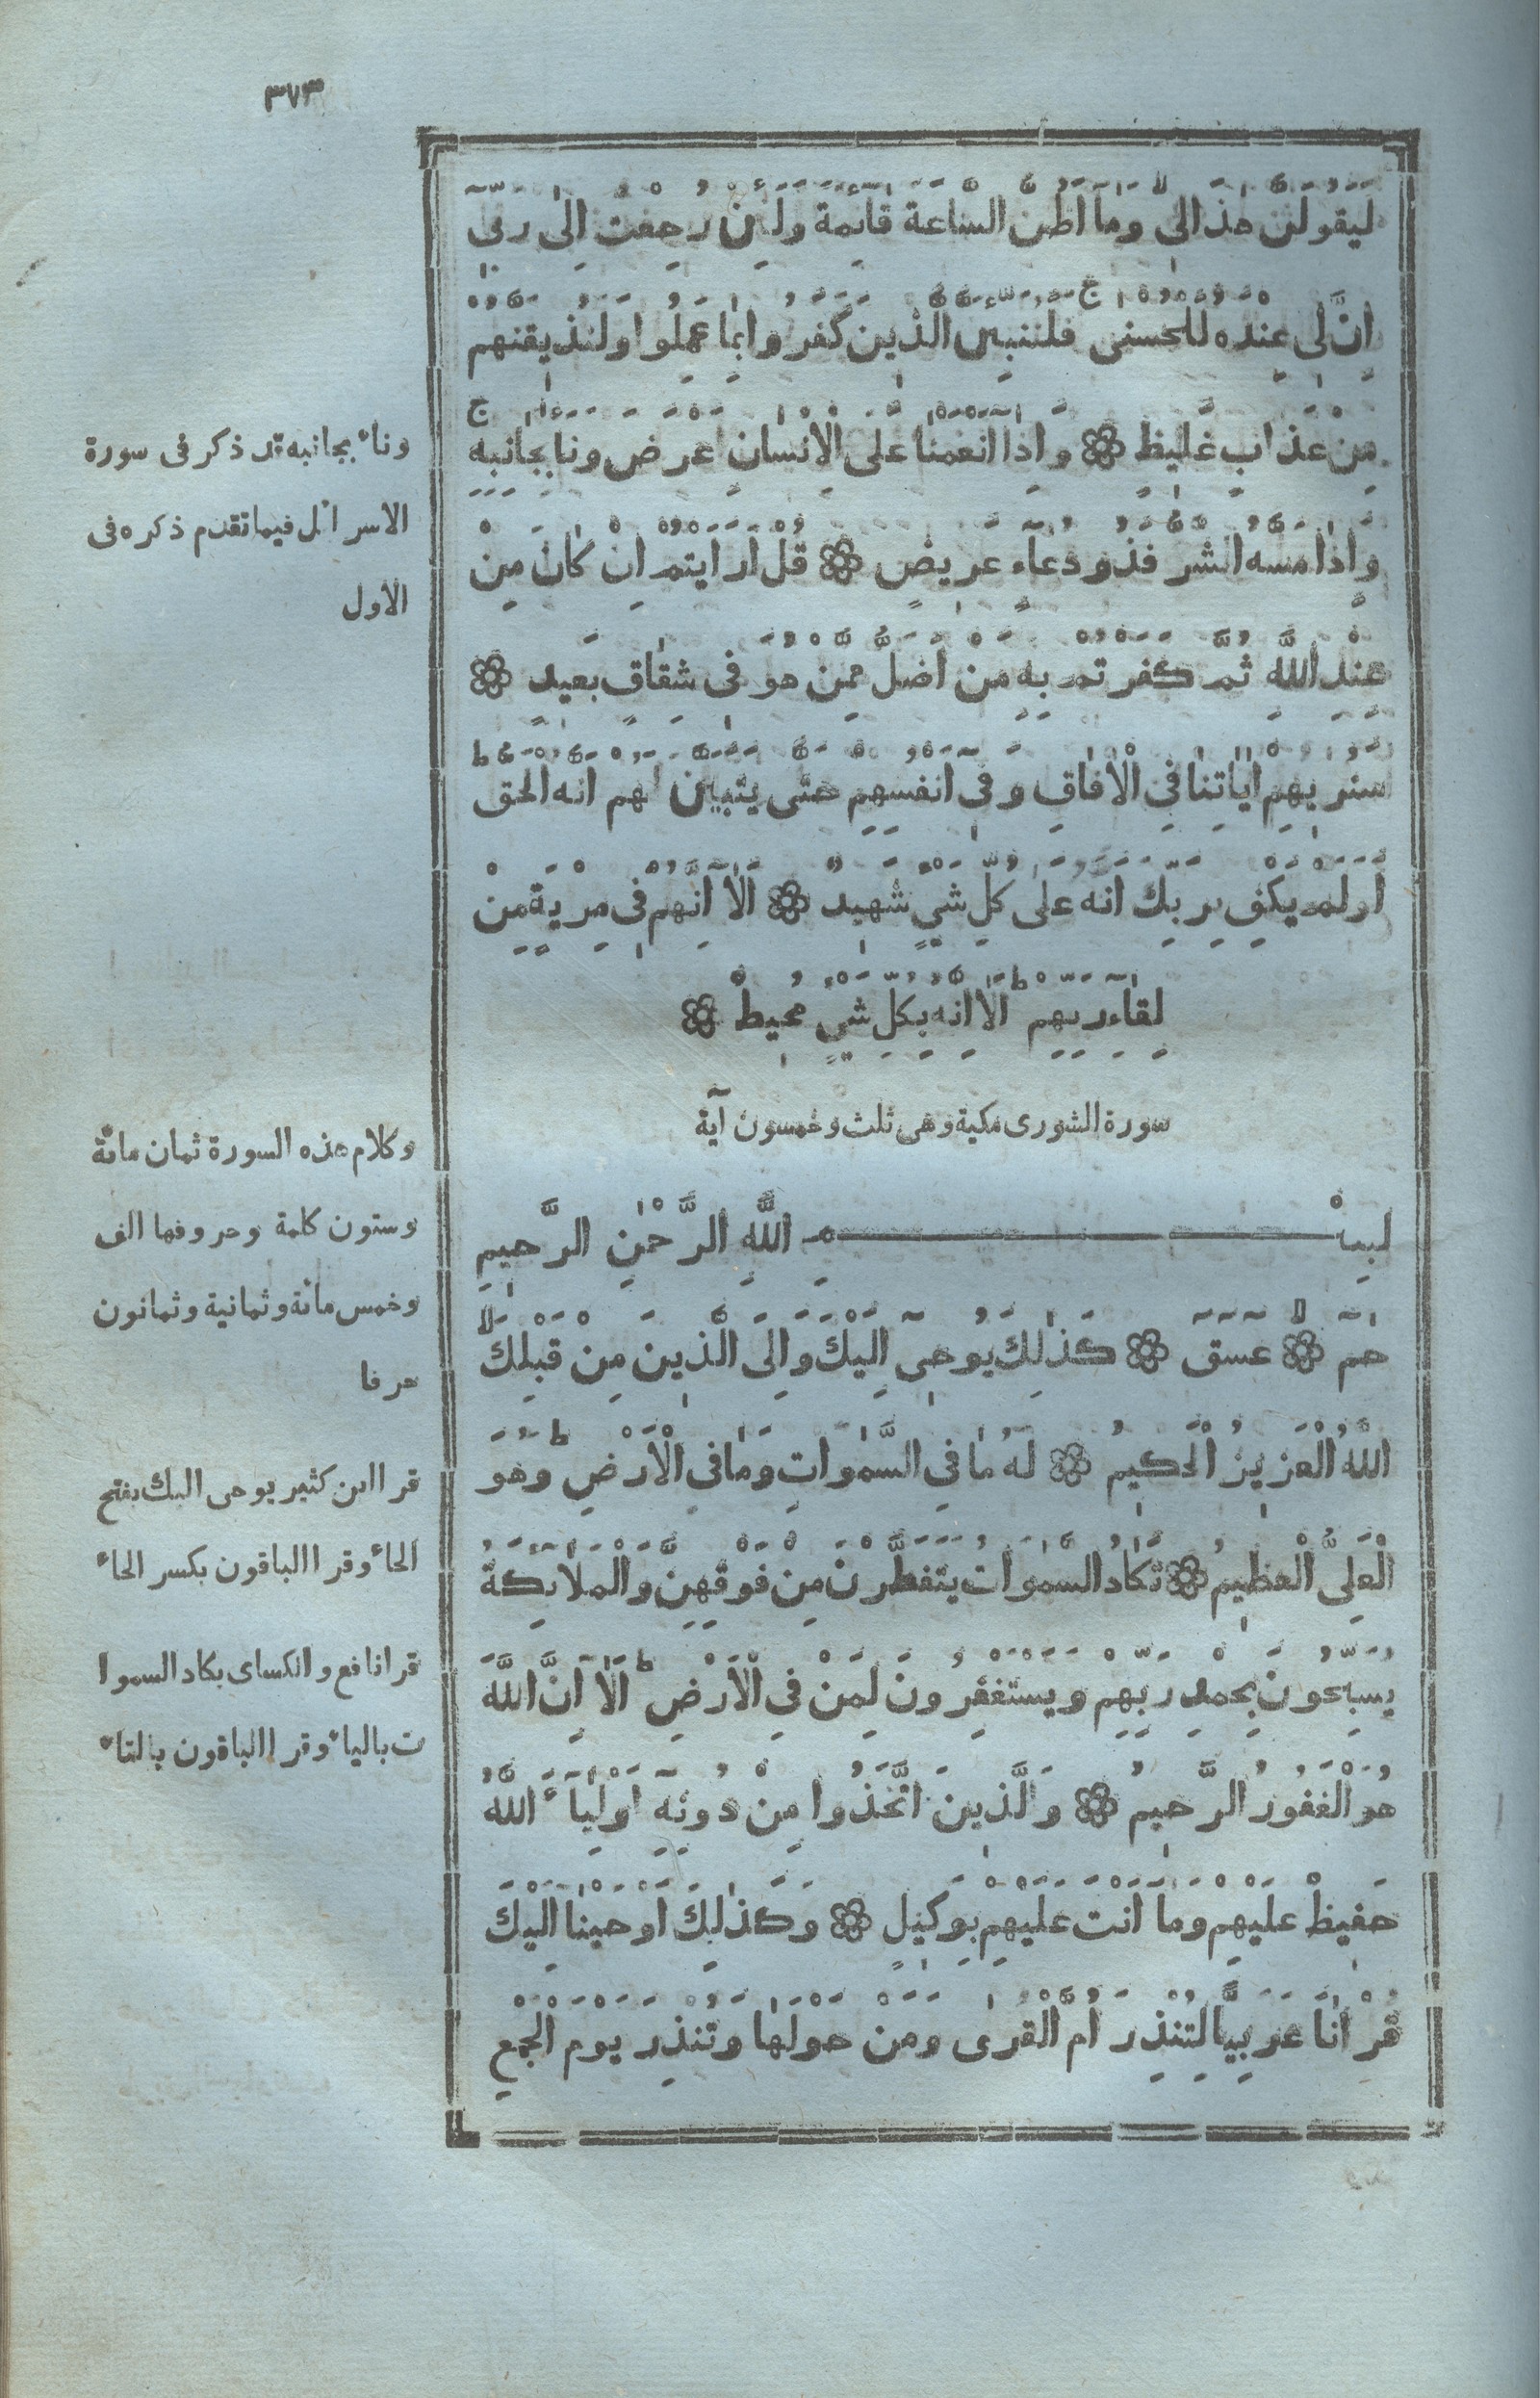 ٣٧٣
لَيَقُولَنَّ هٰذَا لِىْ وَمَآ اَظُنُّ السَّاعَةَ قَآئِمَةً وَلَئِنْ رُجِعْتُ اِلٰى رَبِّىٓ
اِنَّ لِى عِنْدَهُ لَلْحُسْنٰى ج فَلَنُنَبِّئَنَّ الَّذِينَ كَفَرُوا بِمَا عَمِلُوا وَلَنُذِيقَنَّهُمْ
مِنْ عَذَابٍ غَلِيظٍ ۞ وَاِذَآ اَنْعَمْنَا عَلَى الْاِنْسَانِ اَعْرَضَ وَنَاَ بِجَانِبِهِ ج
وَاِذَا مَسَّهُ الشَّرُّ فَذُو دُعَآءٍ عَرِيضٍ ۞ قُلْ اَرَاَيْتُمْ اِنْ كَانَ مِنْ
عِنْدِ اللَّهِ ثُمَّ كَفَرْتُمْ بِهِ مَنْ اَضَلُّ مِمَّنْ هُوَ فِى شِقَاقٍ بَعِيدٍ ۞
سَنُرِيهِمْ اٰيَاتِنَا فِى الْاٰفَاقِ وَفِىٓ اَنْفُسِهِمْ حَتّٰى يَتَبَيَّنَ لَهُمْ اَنَّهُ الْحَقُّ ط
اَوَلَمْ يَكْفِ بِرَبِّكَ اَنَّهُ عَلٰى كُلِّ شَىْءٍ شَهِيدٌ ۞ اَلَآ اِنَّهُمْ فِى مِرْيَةٍ مِنْ
لِقَآءِ رَبِّهِمْ ط اَلَآ اِنَّهُ بِكُلِّ شَىْءٍ مُحِيطٌ ۞
سورة الشورى مكية وهى ثلث وخمسون آية
بِسْمِ اللَّهِ الرَّحْمٰنِ الرَّحِيمِ
حٰمٓ لا ۞ عٓسٓقٓ ۞ كَذٰلِكَ يُوحِىٓ اِلَيْكَ وَاِلَى الَّذِينَ مِنْ قَبْلِكَ لا
اللَّهُ الْعَزِيزُ الْحَكِيمُ ۞ لَهُ مَا فِى السَّمٰوَاتِ وَمَا فِى الْاَرْضِ ط وَهُوَ
الْعَلِىُّ الْعَظِيمُ ۞ تَكَادُ السَّمٰوَاتُ يَتَفَطَّرْنَ مِنْ فَوْقِهِنَّ وَالْمَلَآئِكَةُ
يُسَبِّحُونَ بِحَمْدِ رَبِّهِمْ وَيَسْتَغْفِرُونَ لِمَنْ فِى الْاَرْضِ ط اَلَآ اِنَّ اللَّهَ
هُوَ الْغَفُورُ الرَّحِيمُ ۞ وَالَّذِينَ اتَّخَذُوا مِنْ دُونِهِٓ اَوْلِيَآءَ اللَّهُ
حَفِيظٌ عَلَيْهِمْ وَمَآ اَنْتَ عَلَيْهِمْ بِوَكِيلٍ ۞ وَكَذٰلِكَ اَوْحَيْنَآ اِلَيْكَ
قُرْاٰنًا عَرَبِيًّا لِتُنْذِرَ اُمَّ الْقُرٰى وَمَنْ حَوْلَهَا وَتُنْذِرَ يَوْمَ الْجَمْعِ
وناء بجانبه قد ذكر فى سورة
الاسرائل فيما تقدم ذكره فى
الاول
وكلام هذه السورة ثمان مائة
وستون كلمة وحروفها الف
وخمس مائة وثمانية وثمانون
حرفا
قرا ابن كثير يوحى اليك بفتح
الحاء وقرا الباقون بكسر الحاء
قرا نافع والكساى يكاد السموا
ت بالياء وقرا الباقون بالتاء